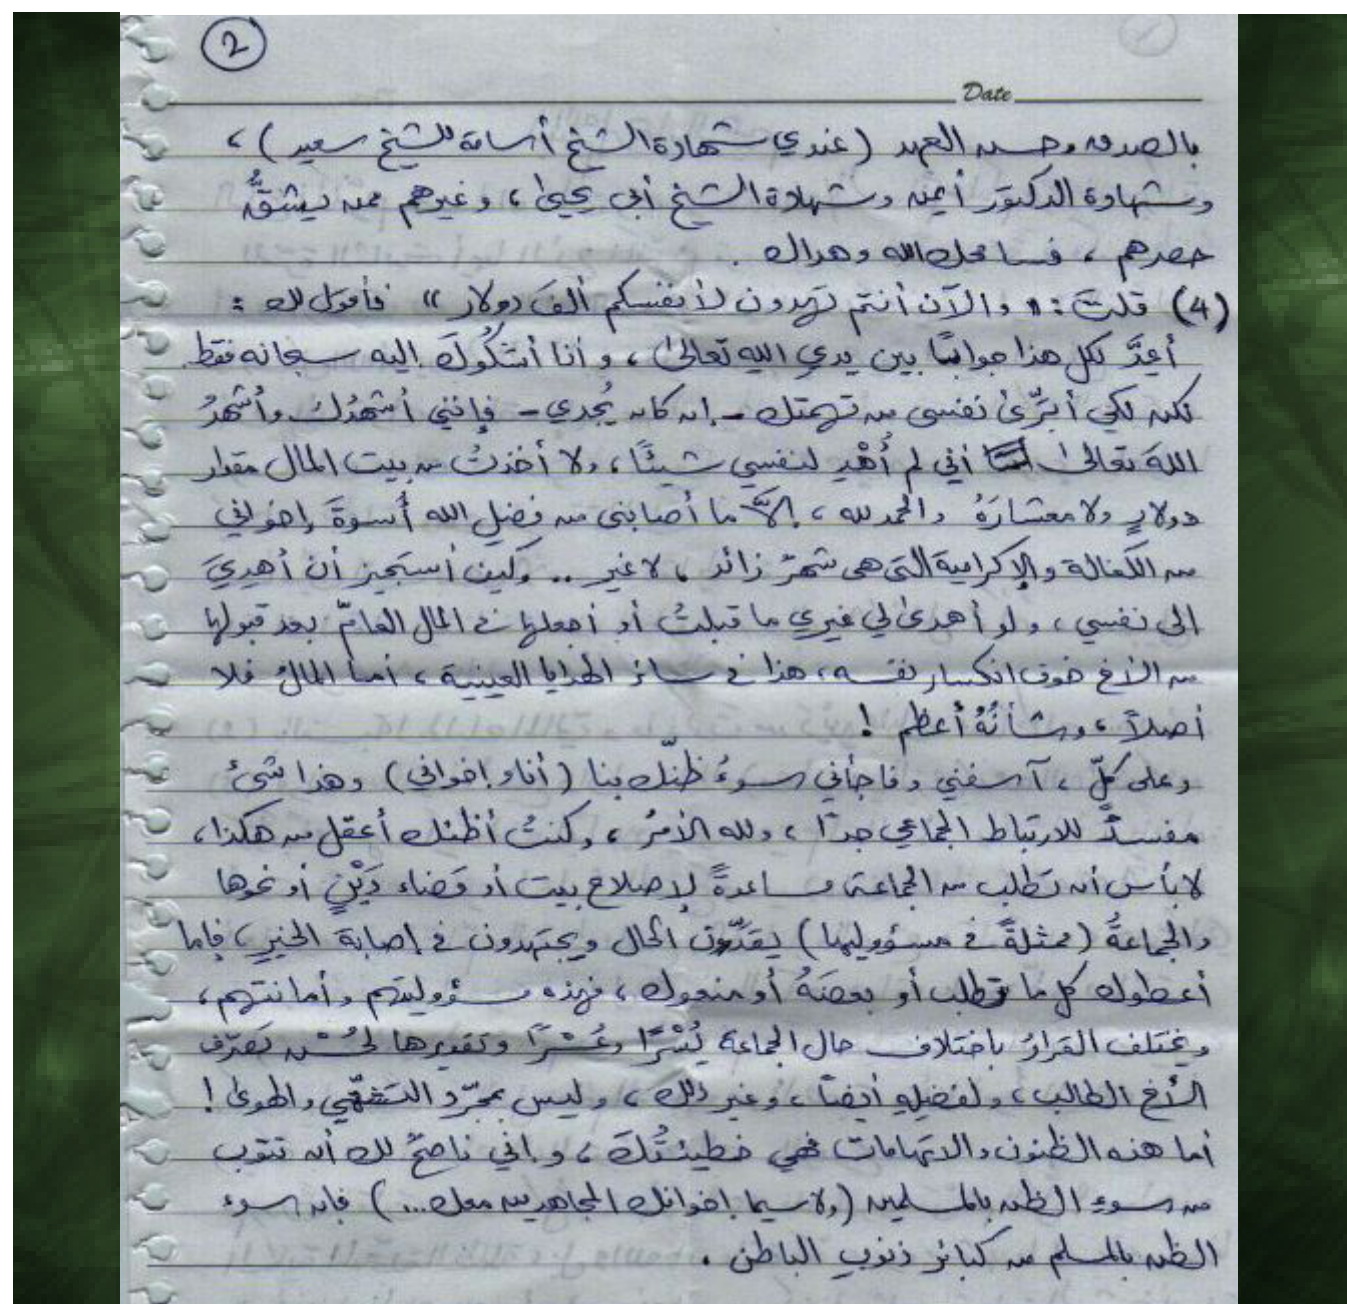 2
Date
بالصدق وحسن العهد (عندي شهادة الشيخ أسامة للشيخ سعيد) ،
وشهادة الدكتور أيمن وشهادة الشيخ أبي يحيىٰ ، وغيرهم ممن يشقُّ
حصرهم ، فسامحك الله وهداك .
(4) قلتَ : " والآن أنتم تهدون لأنفسكم ألفَ دولار " فأقول لك :
أعِدَّ لكل هذا جوابًا بين يدي الله تعالىٰ ، وأنا أشكُوكَ إليه سبحانه فقط
لكن لكي أبرِّئ نفسي من تهمتك - إن كان يُجدي - فإنني أُشهدُك وأُشهدُ
اللهَ تعالىٰ أني لم أُهْدِ لنفسي شيئًا ، ولا أخذتُ من بيت المال مقدار
دولارٍ ولا معشارَهُ والحمد لله ، إلاَّ ما أصابني من فضلِ الله أُسوةَ إخواني
من الكفالة والإكرامية التي هي شهرٌ زائد ، لا غير .. وكيف أستجيز أن أهديَ
إلى نفسي ، ولو أهدىٰ لي غيري ما قبلتُ أو أجعلها في المال العامّ بعد قبولها
من الأخ خوف انكسار نفسه ، هذا في سائر الهدايا العينية ، أما المالُ فلا
أصلاً ، وشأنُهُ أعظم !
وعلى كلٍّ ، آسفني وفاجأني سوءُ ظنّك بنا (أنا وإخواني) وهذا شيءٌ
مفسدٌ للارتباط الجماعي جدًا ، ولله الأمرُ ، وكنتُ أظنك أعقل من هكذا ،
لا بأس أن تطلب من الجماعة مساعدةً لإصلاح بيت أو قضاء دَيْنٍ أو نحوها
والجماعةُ (ممثلةً في مسؤوليها) يقدّرون الحال ويجتهدون في إصابة الخير ، فإما
أعطوك كل ما تطلب أو بعضَهُ أو منعوك ، فهذه مسؤوليتهم وأمانتهم ،
ويختلف القرارُ باختلاف حال الجماعة يُسْرًا وعُسْرًا وتقديرها لحُسْن تصرّف
الأخ الطالب ، ولفضلِهِ أيضًا ، وغير ذلك ، وليس بمجرّد التشهّي والهوىٰ !
أما هذه الظنون والاتهامات فهي خطيئتُكَ ، وإني ناصحٌ لك أن تتوب
من سوءِ الظن بالمسلمين (ولا سيما إخوانك المجاهدين معك...) فإن سوء
الظن بالمسلم من كبائر ذنوب الباطن .